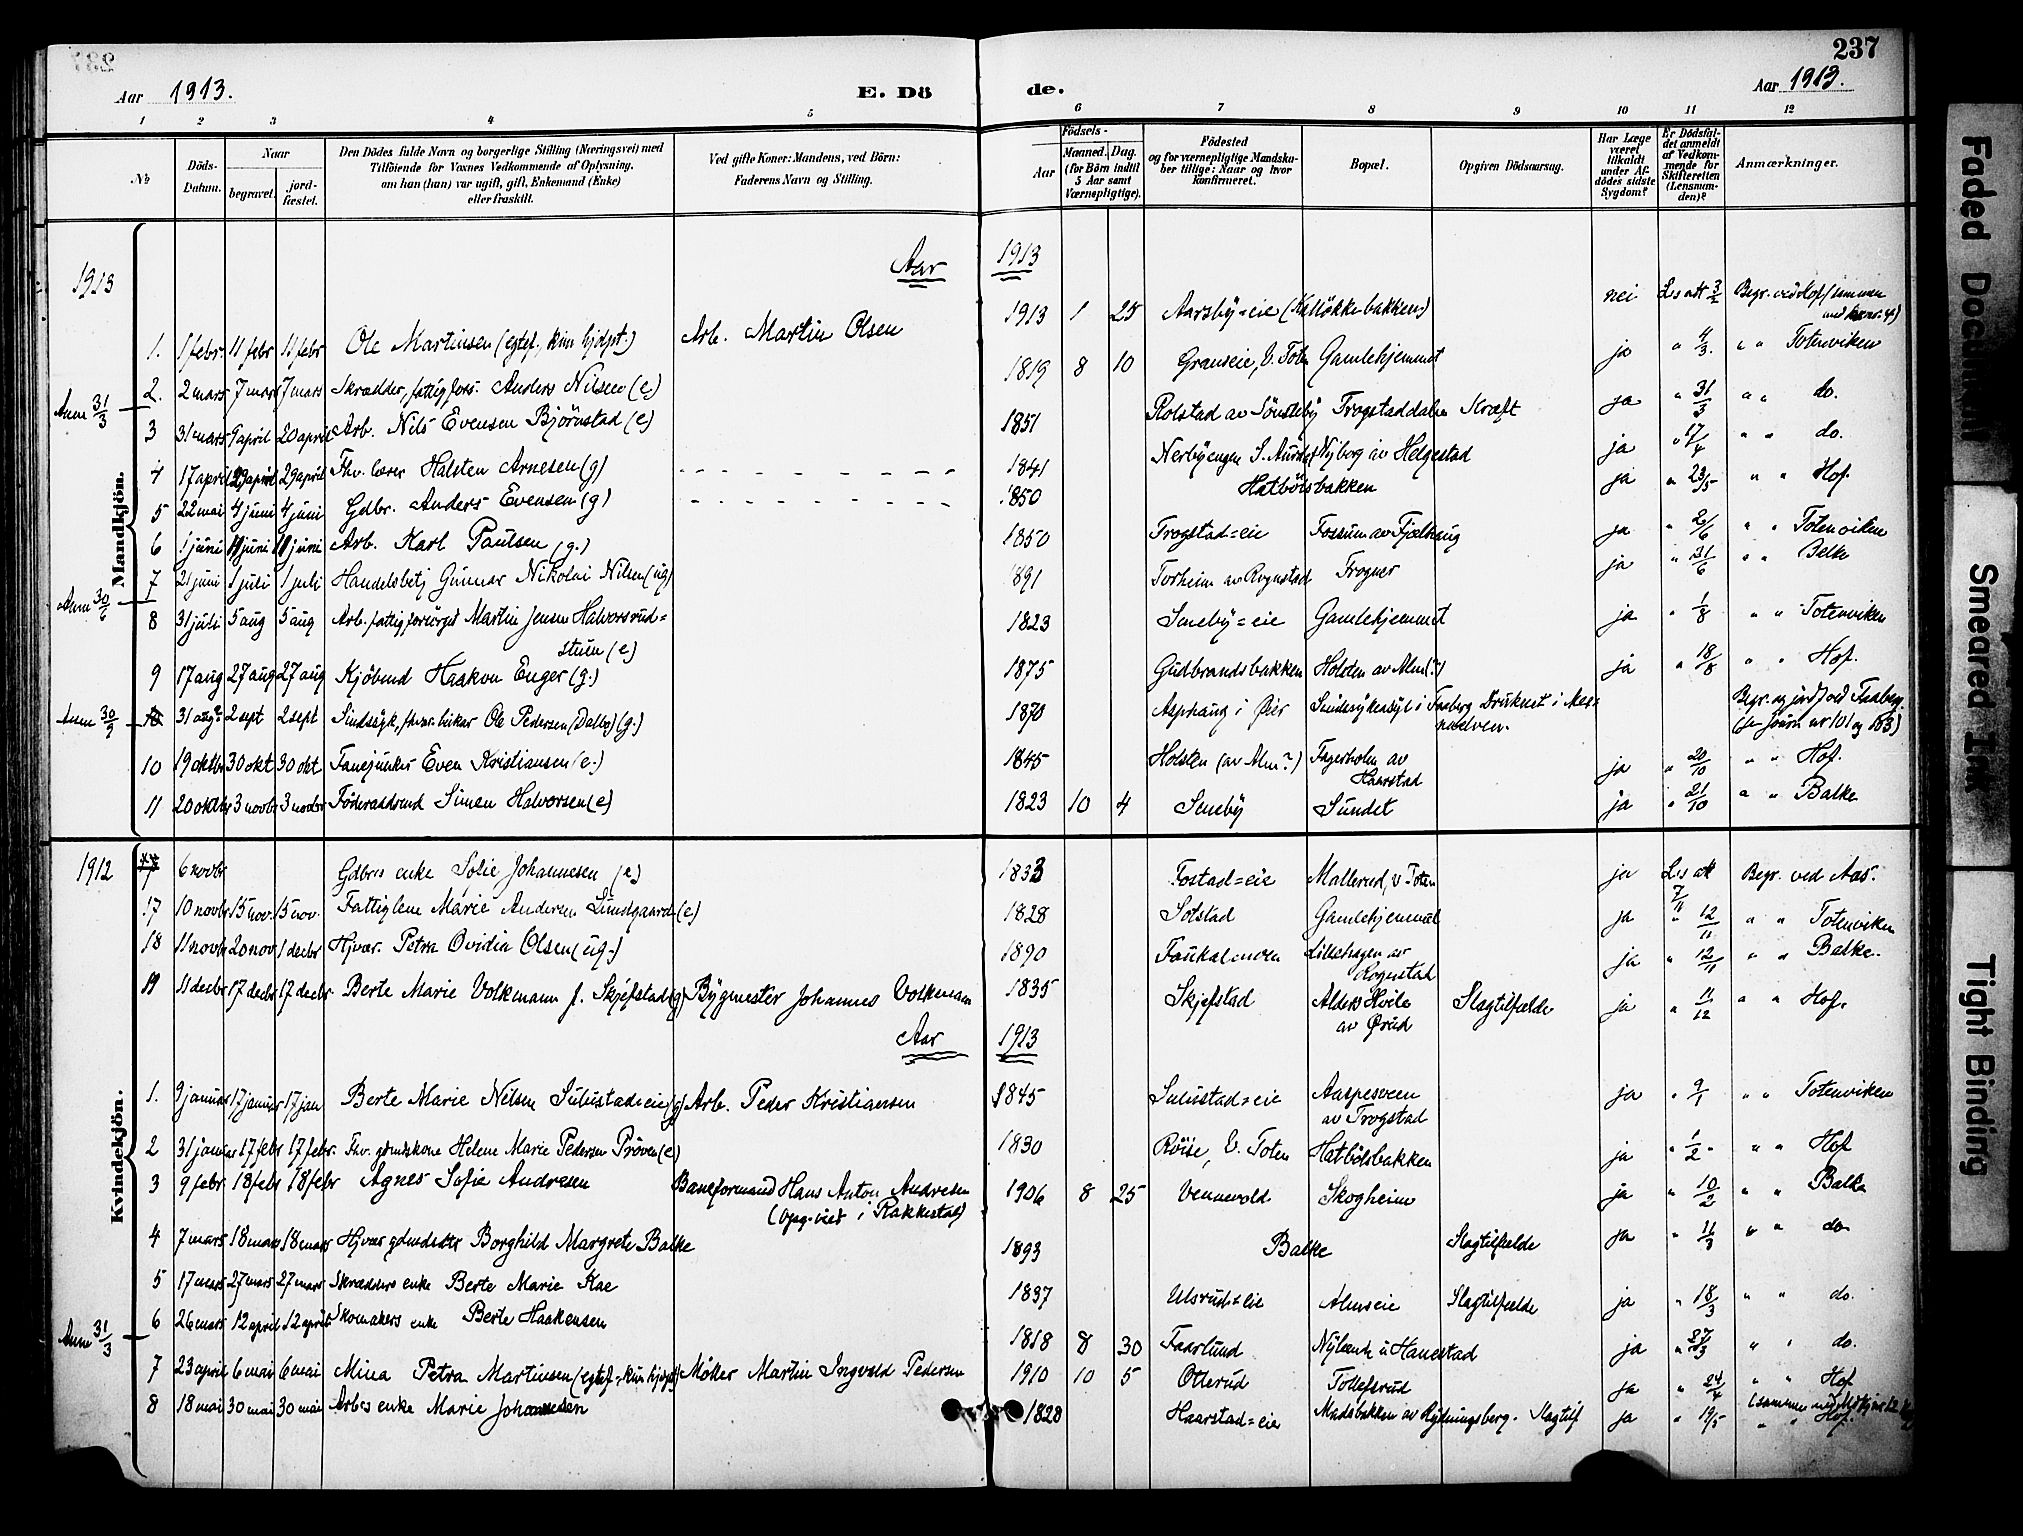 237
Aar 1913.
E. Dö de.
Aar 1913.
1 2 3 4 5 6 7 8 9 10 11 12
No
Döds-Datum.
Naar
begravet.
jord-fæstet.
Den Dödes fulde Navn og borgerlige Stilling (Næringsvei) med
Tilföiende for Voxnes Vedkommende af Oplysning,
om han (hun) var ugift, gift, Enkemand (Enke)
eller fraskilt.
Ved gifte Koner: Mandens, ved Börn:
Faderens Navn og Stilling.
Födsels-
Aar
Maaned. Dag.
(for Börn indtil
5 Aar samt
Værnepligtige).
Födested
og for værnepligtige Mandskaber tillige: Naar og hvor
konfirmeret.
Bopæl.
Opgiven Dödsaarsag.
Har Læge
været
tilkaldt
under Afdödes sidste
Sygdom?
Er Dödsfaldet anmeldt
af Vedkommende for
Skifteretten
(Lensmanden)?
Anmærkninger.
Mandkjön.
1913
Aar 1913
1. 1 febr. 11 febr 11 febr Ole Martinsen (egtef., kun hjdpt.) Arb. Martin Olsen 1913 1 25 Aarsby=eie nei L.s att 3/2 Begr. ved Hof
2. 2 mars 7 mars 7 mars Skrædder, fattigfors. Anders Nilsen (e) 1819 8 10 Granseie, V. Toten Gamlehjemmet ja " 4/3. " " Totenviken
Anm 31/3
3 31 mars 9 april 20 april Arb. Nils Evensen Björnstad (e) 1851 Rolstad av Sönsteby Trogstaddalen Kræft ja " 31/3 " " do.
4 17 april 29 april 29 april Fhv. lærer Halsten Arnesen (g) 1841 Nerbyengen S. Aurdal Nyborg av Helgestad ja " 17/4 " " do.
5 22 mai 4 juni 4 juni Gdbr. Anders Evensen (g) 1850 Hatbölsbakken ja " 23/5 " " Hof.
6 1 juni 11 juni 11 juni Arb. Karl Paulsen (g.) 1850 Trogstad=eie Fossum av Fjælhaug ja " 2/6 " " Totenviken
7 21 juni 1 juli 1 juli Handelsbetj Gunnar Nikolai Nilsen (ug) 1891 Torheim av Rognstad Trogner ja " 21/6 " " Balke
Anm 30/6
8 31 juli 5 aug 5 aug Arb. fattigforsörget Martin Jensen Halvorsrud=
stuen (e) 1823 Seneby=eie Gamlehjemmet ja " 1/8 " " Totenviken
9 17 aug 27 aug 27 aug Kjöbmd Haakon Enger (g.) 1875 Gudbrandsbakken Holsten av Alm (?) ja " 18/8 " " Hof.
Anm 30/9
10 31 aug 2 sept 2 sept Sindssyk, Ole Pedersen (Dalby) (g.) 1870 Asphaug i Öier Sindssykeasyl i Faaberg Druknet i
Begr. og jordf. ved Faaberg.
(se journ. nr 101 og 103)
10 19 oktbr 30 okt 30 okt Fanejunker Even Kristiansen (e.) 1845 Holsten (av Alm?) Fagerholm av
Haarstad ja " 20/10 " " Hof.
11 20 oktbr 3 novbr 3 novbr Föderaadsmd Simen Halvorsen (e) 1823 10 4 Seneby Sundet ja " 21/10 " " Balke
Kvindekjön.
1912
6 novbr Gdbrs enke Solie Johannesen (e) 1833 Fostad=eie Mallerud, V Toten ja L.s att 7/11 Begr. ved Aas.
17 10 novbr 15 nov. 15 nov. Fattiglem Marie Andersen Sundgaard (e) 1828 Solstad Gamlehjemmet ja " 12/11 " " Totenviken
18 11 novbr 20 nov. 1 decbr Hjvær. Petra Ovidia Olsen (ug.) 1890 Faukalmoen Lillehagen av
Rognstad ja " 12/11 " " Balke.
19 11 decbr 17 decbr 17 decbr. Berte Marie Volkmann f. Skjefstad (g) Bygmester Johannes Volkmann 1835 Skjefstad Alders Hvile
av Ørud Slagtilfælde ja " 11/12 " " Hof.
Aar 1913
1. 9 januar 17 januar 17 jan Berte Marie Nilsen Sulustad=eie (g) Arb. Peder Kristiansen 1845 Sulustad=eie Aaspesveen
av Trogstad ja " 9/1 " " Totenviken
2 31 januar 17 febr 17 febr. Fhv. gdmdskone Helene Marie Pedersen Pröven (e) 1830 Röise, V. Toten Hatbölsbakken ja " 1/2 " " " Hof
3 9 febr. 18 febr 18 febr Agnes Sofie Andresen Baneformand Hans Anton Andresen
(Opg-vist i Rakkestad) 1906 8 25 Vennevold Skogheim ja " 10/2 " " Balke
4 7 mars 18 mars 18 mars Hjvær gdmdsdtr Borghild Margrete Balke 1893 Balke Slagtilfælde ja " 11/3 " " do
5 17 mars 27 mars 27 mars Skrædders enke Berte Marie Kae 1837 Ulsrud=eie Almseie Slagtilfælde ja " 18/3 " " do.
6 26 mars 12 april 12 april Skomakers enke Berte Haakensen 1818 8 30 Faarlund Nylænde u Hanestad ja " 27/3 " " do.
Anm 31/3
7 23 april 6 mai 6 mai Mina Petra Martinsen (egtef. kun hjdpt) Möller Martin Ingvold Pedersen 1910 10 5 Otterud Tollefsrud ja " 24/4 " " Hof
8 18 mai 30 mai 30 mai Arbs enke Marie Johannesen 1828 Haarstad=eie Madsbakken av Slagtilf ja " 19/5 " " Hof.
Faded Document
Smeared Ink
Tight Binding